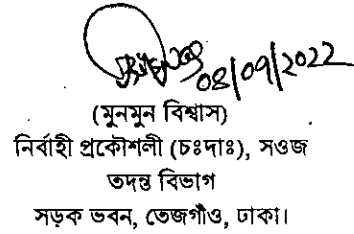 08/09/2022
(মুনমুন বিশ্বাস)
নির্বাহী প্রকৌশলী (চঃদাঃ), সওজ
তদন্ত বিভাগ
সড়ক ভবন, তেজগাঁও, ঢাকা।